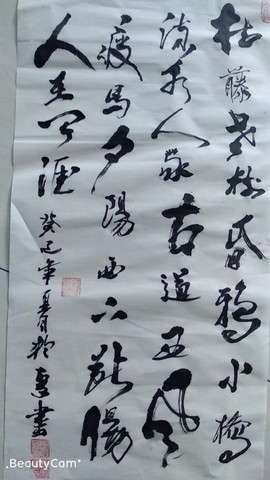 枯藤老树昏鸦小橋
流水人家古道西风
瘦馬夕陽西下断腸
人在天涯
癸巳年夏月 書
BeautyCam